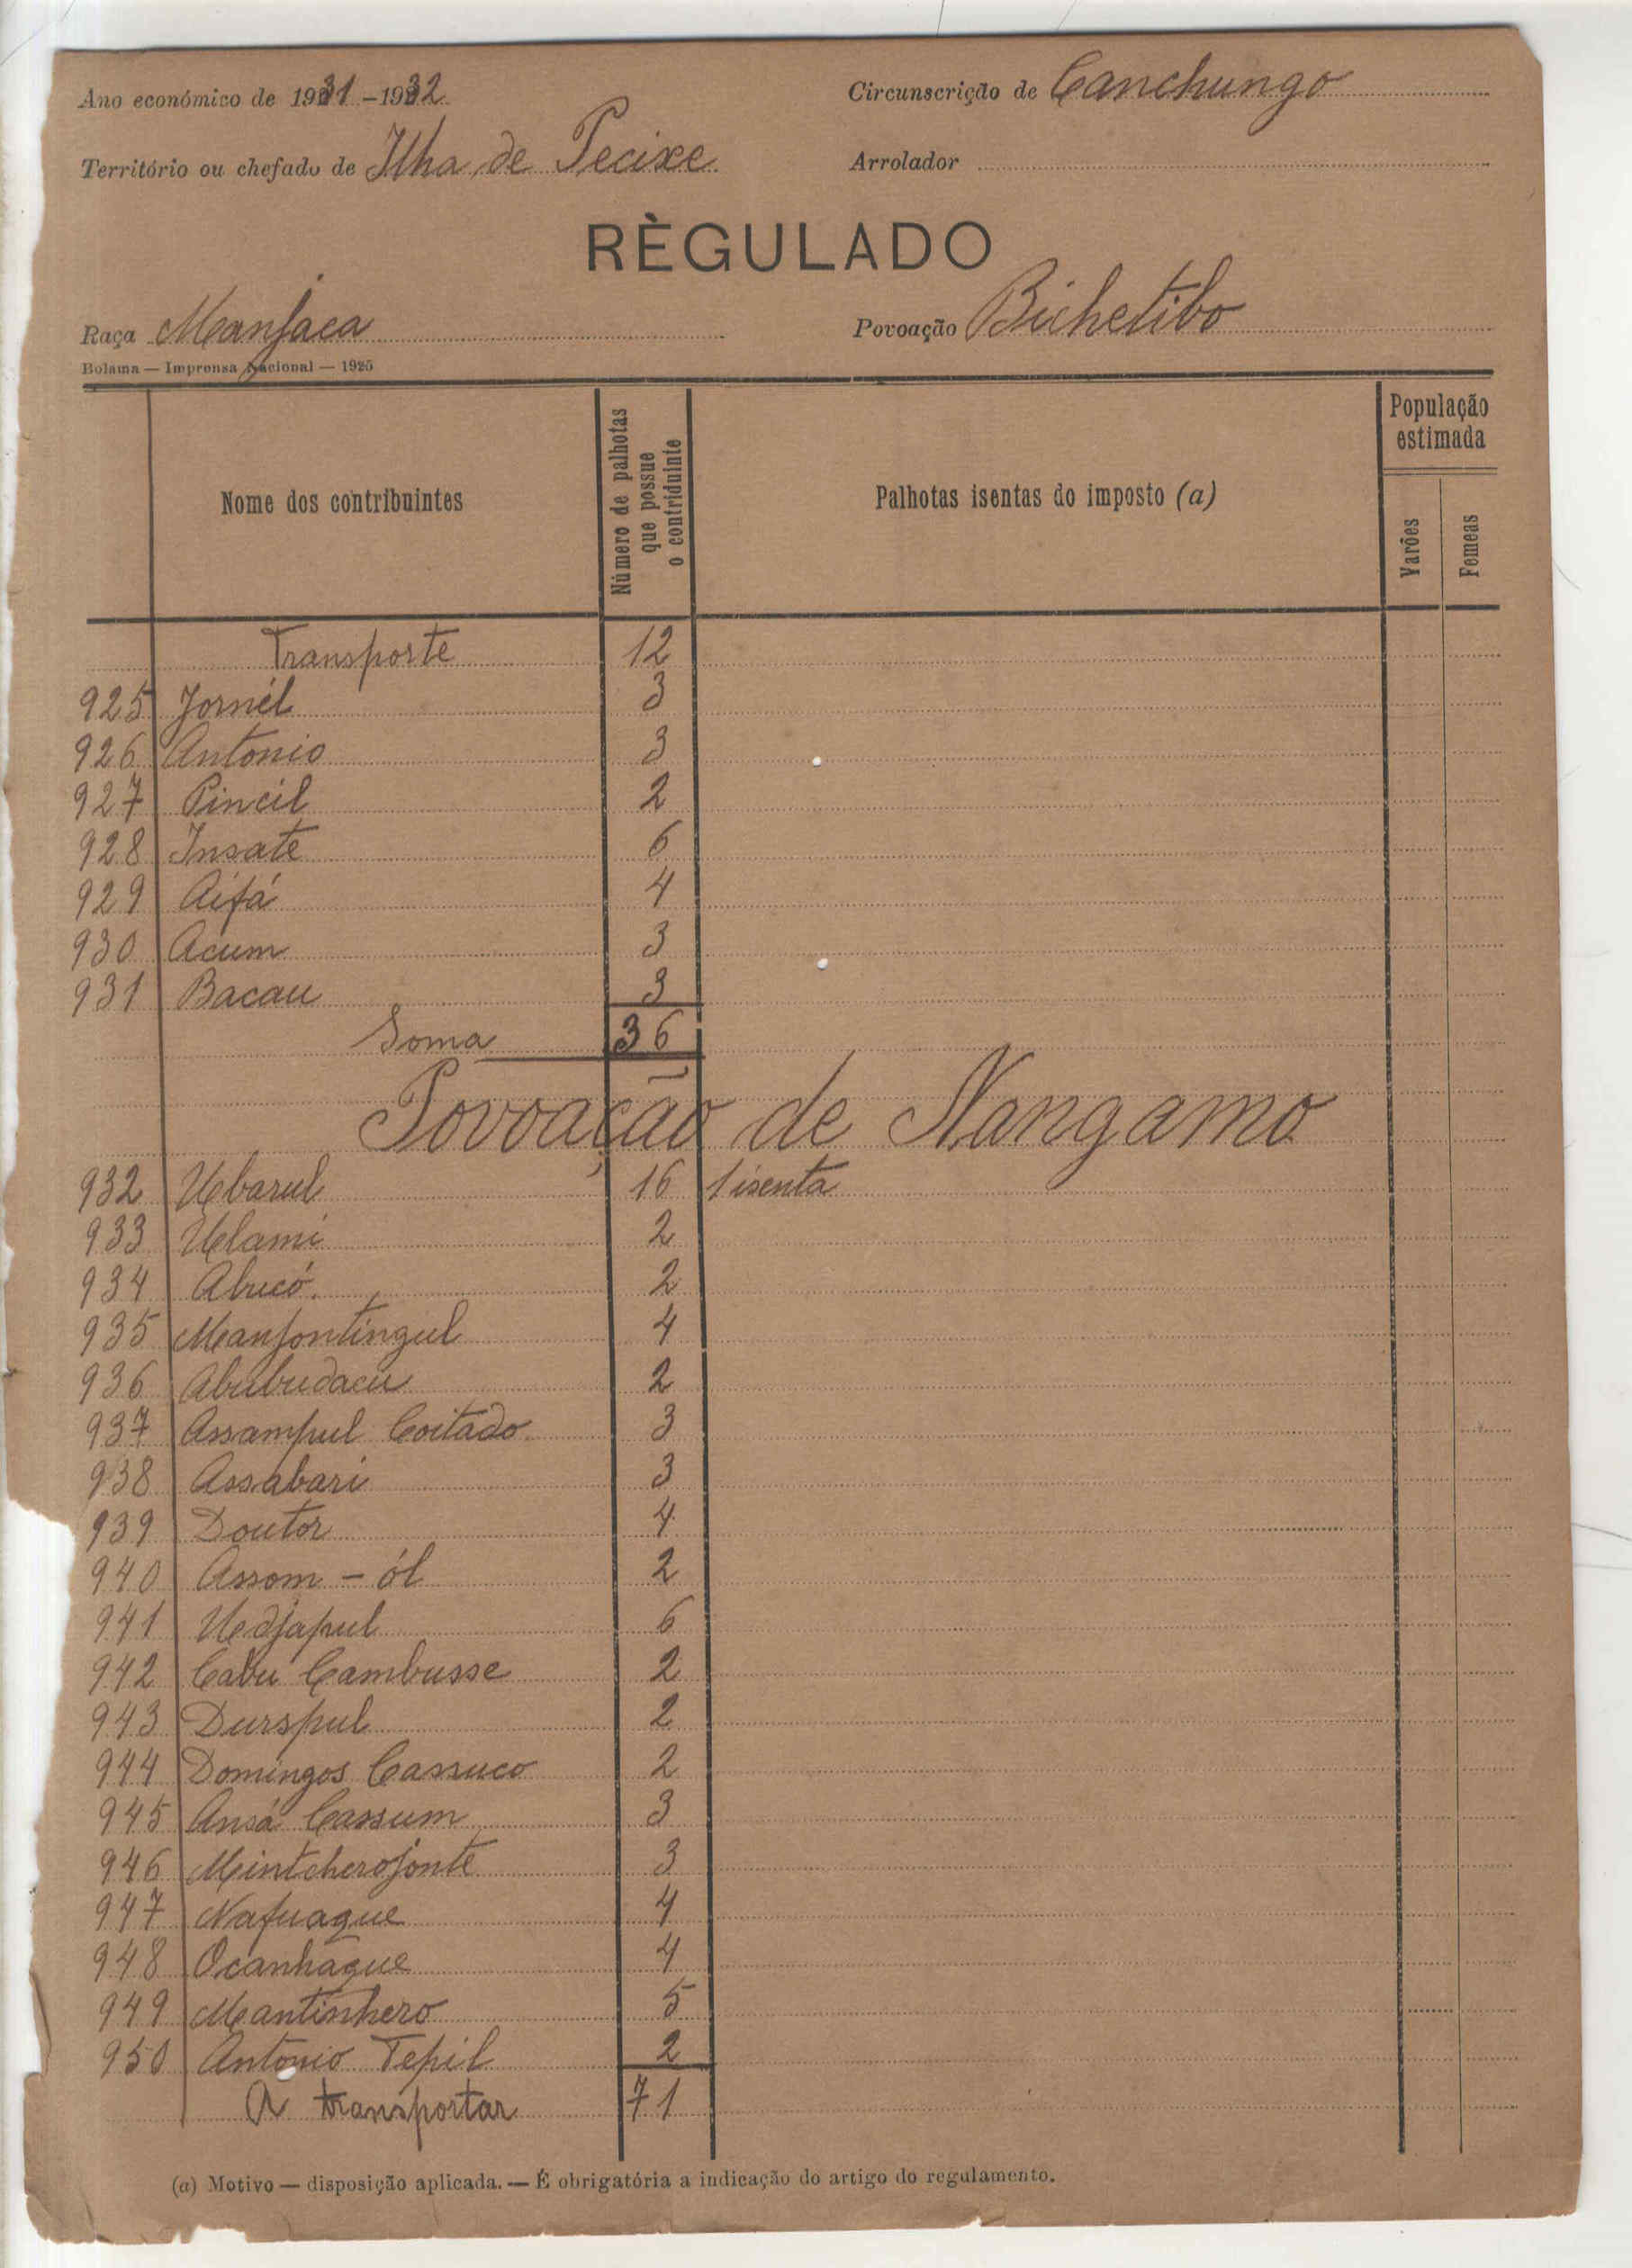 Ano económico de 1931-1932
Circunscrição de Canchungo
Território ou chefado de Ilha de Pecixe
Arrolador
RÈGULADO
Raça Manjaca
Povoação Bichetibo
Bolama — Imprensa Nacional — 1925
Nome dos contribuintes
Número de palhotas que possue o contriduinte
Palhotas isentas do imposto (a)
População estimada
Varões
Femeas
Transporte 12
925 Jornél 3
926 Antonio 3
927 Pincil 2
928 Insate 6
929 Aifá 4
930 Acum 3
931 Bacau 3
Soma 36
Povoação de Nangamo
932 Ubarul 16 1 isenta
933 Ulami 2
934 Abucó 2
935 Manjontingul 4
936 Abubudacu 2
937 Assampul Coitado 3
938 Assabari 3
939 Doutor 4
940 Assom - ól 2
941 Udjapul 6
942 Cabu Cambusse 2
943 Durspul 2
944 Domingos Cassuco 2
945 Ansá Cassum 3
946 Mintcherojonte 3
947 Nafuaque 4
948 Ocanhaque 4
949 Mantinhero 5
950 Antonio Tepil 2
A transportar 71
(a) Motivo — disposição aplicada. — É obrigatória a indicação do artigo do regulamento.